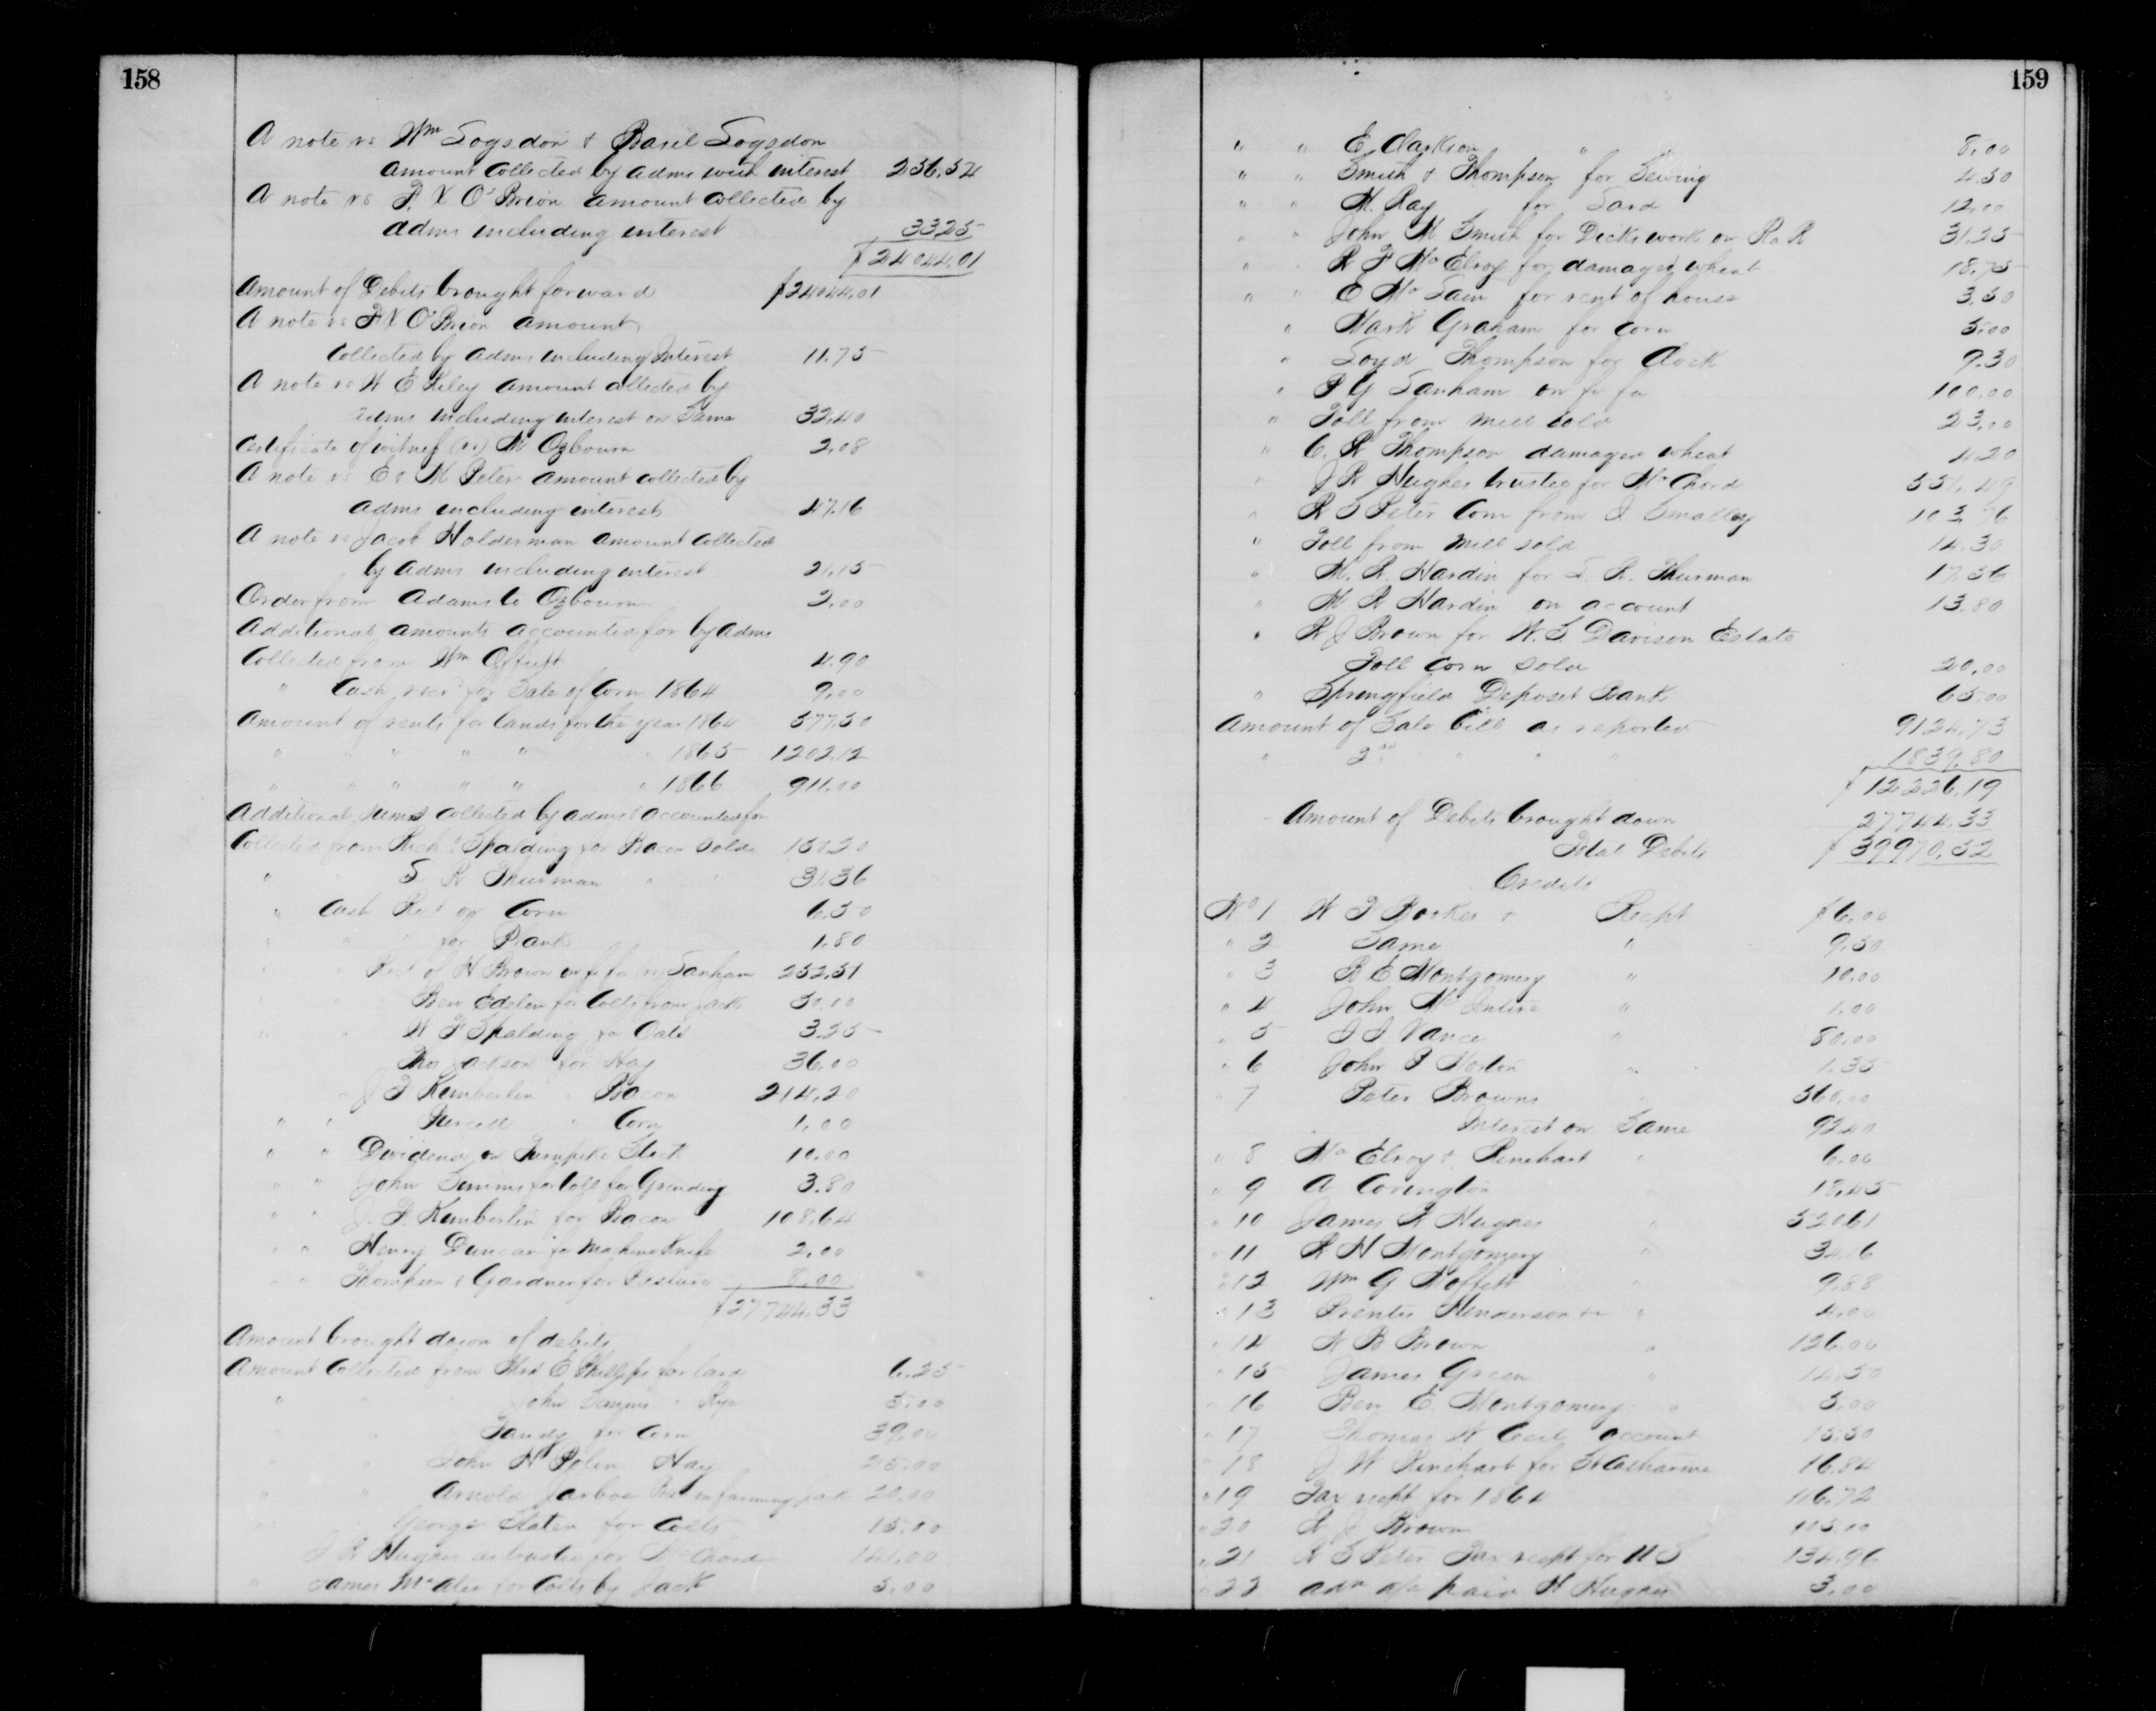 158
A note vs Wm Logsdon & Basil Logsdon
amount collected by admr with interest 236,54
A note vs F. X O'Brion amount collected by
admr including interest 33,25
$24044,01
Amount of Debits brought forward $24044,01
A note vs F X O'Brion amount
collected by admr including Interest 11.75
A note vs W E Riley amount collected by
admr including interest on Same 32,40
Certificate of witness (vs) M Ozbourn 2,08
A note vs E & M Peter amount collected by
admr including interest 47,16
A note vs Jacob Holderman amount collected
by admr including interest 21,15
Order from Adams to Ozbourn 2,00
Additional amounts accounted for by admr
Collected from Wm Offutt 4,90
" Cash recd for Sale of Corn 1864 9,00
Amount of rents for lands for the year 1864 577,50
" " " " " " 1865 1202,12
" " " " " " 1866 911,00
Additional sums collected by admr & accounted for
Collected from Rich & Spalding for Bacon Sold 150,20
" " S R Thurman " " 31,36
" Cash Recd of Corn 6,50
" " " for Plank 1,80
" " Recd of H Brown on fi fa vs Lanham 252,51
" " Ben Edelen for Colts from Jack 50,00
" " W F Spalding for Oats 3.25
Thos Jackson for Hay 36,00
" J F Kimberlin " Bacon 214,20
" " Purcell " Corn 1,00
" " Dividend on Turnpike Stock 10.00
" " John Simms for toll for Grinding 3.80
" " J. F. Kimberlin for Bacon 108,64
" " Henry Duncan for Machine Knife 2,00
" " Thompson & Gardner for Pasture 8,00
$27744,33
Amount brought down of debits
Amount Collected from Mrs E Phillips for lard 6.25
" " John Simms " Rye 5,00
" Tandy for Corn 39,00
" " John H Polin Hay 25,00
" " Arnold Jarboe 20,00
" George Slaten for Colts 15,00
J R Hughes as trustee for McChord 141,00
" James McAtee for Colts by Jack 5,00
159
" " E Clarkson " " 8,00
" " Smith & Thompson for Sewing 4.50
" " M. Ray for Sand 12,00
" " John M Smith for Dicks work on R R 31,25
" " R F McElroy for damaged wheat 18,75
" " E McLain for rent of house 3,50
" Mark Graham for Corn 5,00
" Loyd Thompson for Clock 9,50
" P G Lanham on fi fa 100,00
" Toll from mill sold 23,00
" C. R Thompson damaged wheat 4,20
" J R Hughes trustee for McChord 551,49
" R S Peter Corn from J Smalley
" Toll from mill sold 14,30
" M. R. Hardin for S. R. Thurman 17,56
" M R Hardin on account 13.80
" R J Brown for W. S Davison Estate
Toll Corn sold 20,00
" Springfield Deposit Bank 65,00
Amount of Sale bill as reported 9124,73
" 2nd " " " 1839,80
$12,226,19
Amount of Debits brought down 27744,33
Total Debits $39970,52
Credits
No 1 W F Booker & Recpt $6,00
" 2 Same " 9,50
" 3 B E Montgomery " 10,00
" 4 John McIntire " 1,00
" 5 J J Vance " 80,00
" 6 John P " 1,35
" 7 Peter Browns " 560,00
Interest on Same 92,40
" 8 McElroy & Rinehart " 6,00
" 9 A Covington 18,45
" 10 James R Hughes " 520,61
" 11 R H Montgomery " 34,16
" 12 Wm G Moffett " 9,88
" 13 Prentis Henderson " 4,00
" 14 W B Brown " 126,00
" 15 James Green " 14,50
" 16 Ben E. Montgomery " 5,00
" 17 Thomas W Cecil account 15,50
" 18 J W Rinehart for St Catharine 16,84
" 19 Tax recpt for 1864 116,72
" 20 R J Brown 105,00
" 21 R S Peter Tax recpt for U S 134,96
" 22 adm a/c paid H Hughes 3,00